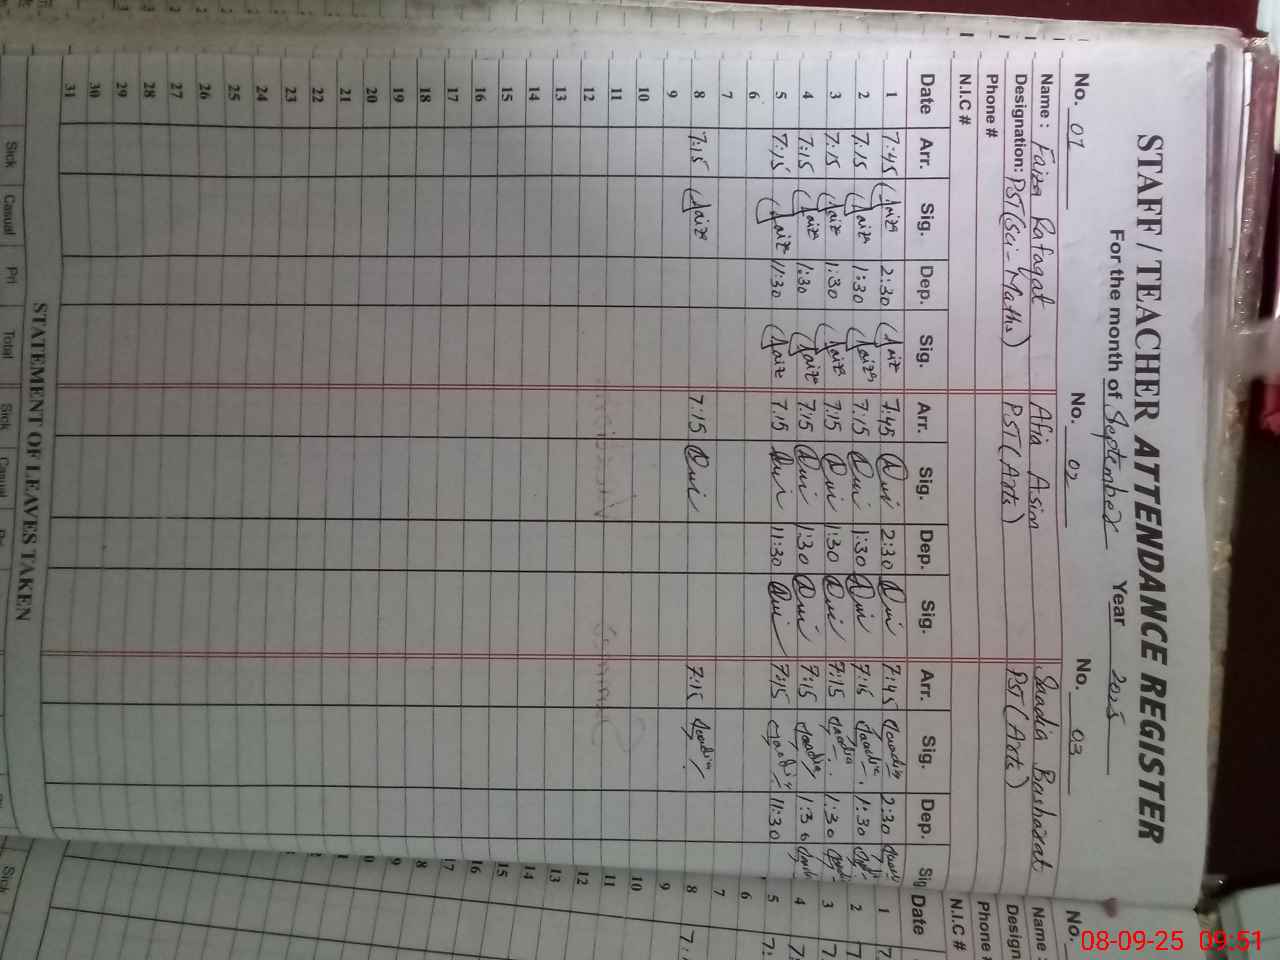 STAFF / TEACHER ATTENDANCE REGISTER
For the month of September Year 2025
No. 01 No. 02 No. 03
Name : Faiza Rafaqat Afia Asim Saadia Basharat
Designation: PST (Sci-Maths) PST (Arts) PST (Arts)
Phone #
N.I.C #
Date Arr. Sig. Dep. Sig. Arr. Sig. Dep. Sig. Arr. Sig. Dep. Sig
1 7:45 Faiza 2:30 Faiza 7:45 2:30 7:45 Saadia 2:30
2 7:15 Faiza 1:30 Faiza 7:15 1:30 7:15 Saadia 1:30
3 7:15 Faiza 1:30 Faiza 7:15 1:30 7:15 Saadia 1:30
4 7:15 Faiza 1:30 Faiza 7:15 1:30 7:15 Saadia 1:30
5 7:15 Faiza 11:30 Faiza 7:15 11:30 7:15 Saadia 11:30
6
7
8 7:15 Faiza 7:15 7:15 Saadia
9
10
11
12
13
14
15
16
17
18
19
20
21
22
23
24
25
26
27
28
29
30
31
STATEMENT OF LEAVES TAKEN
Sick Casual Pri Total Sick Casual
No.
Name :
Design
Phone #
N.I.C #
Date
1 7
2 7
3 7
4 7
5 7
6
7
8 7:
9
10
11
12
13
14
15
16
17
Sick
08-09-25 09:51